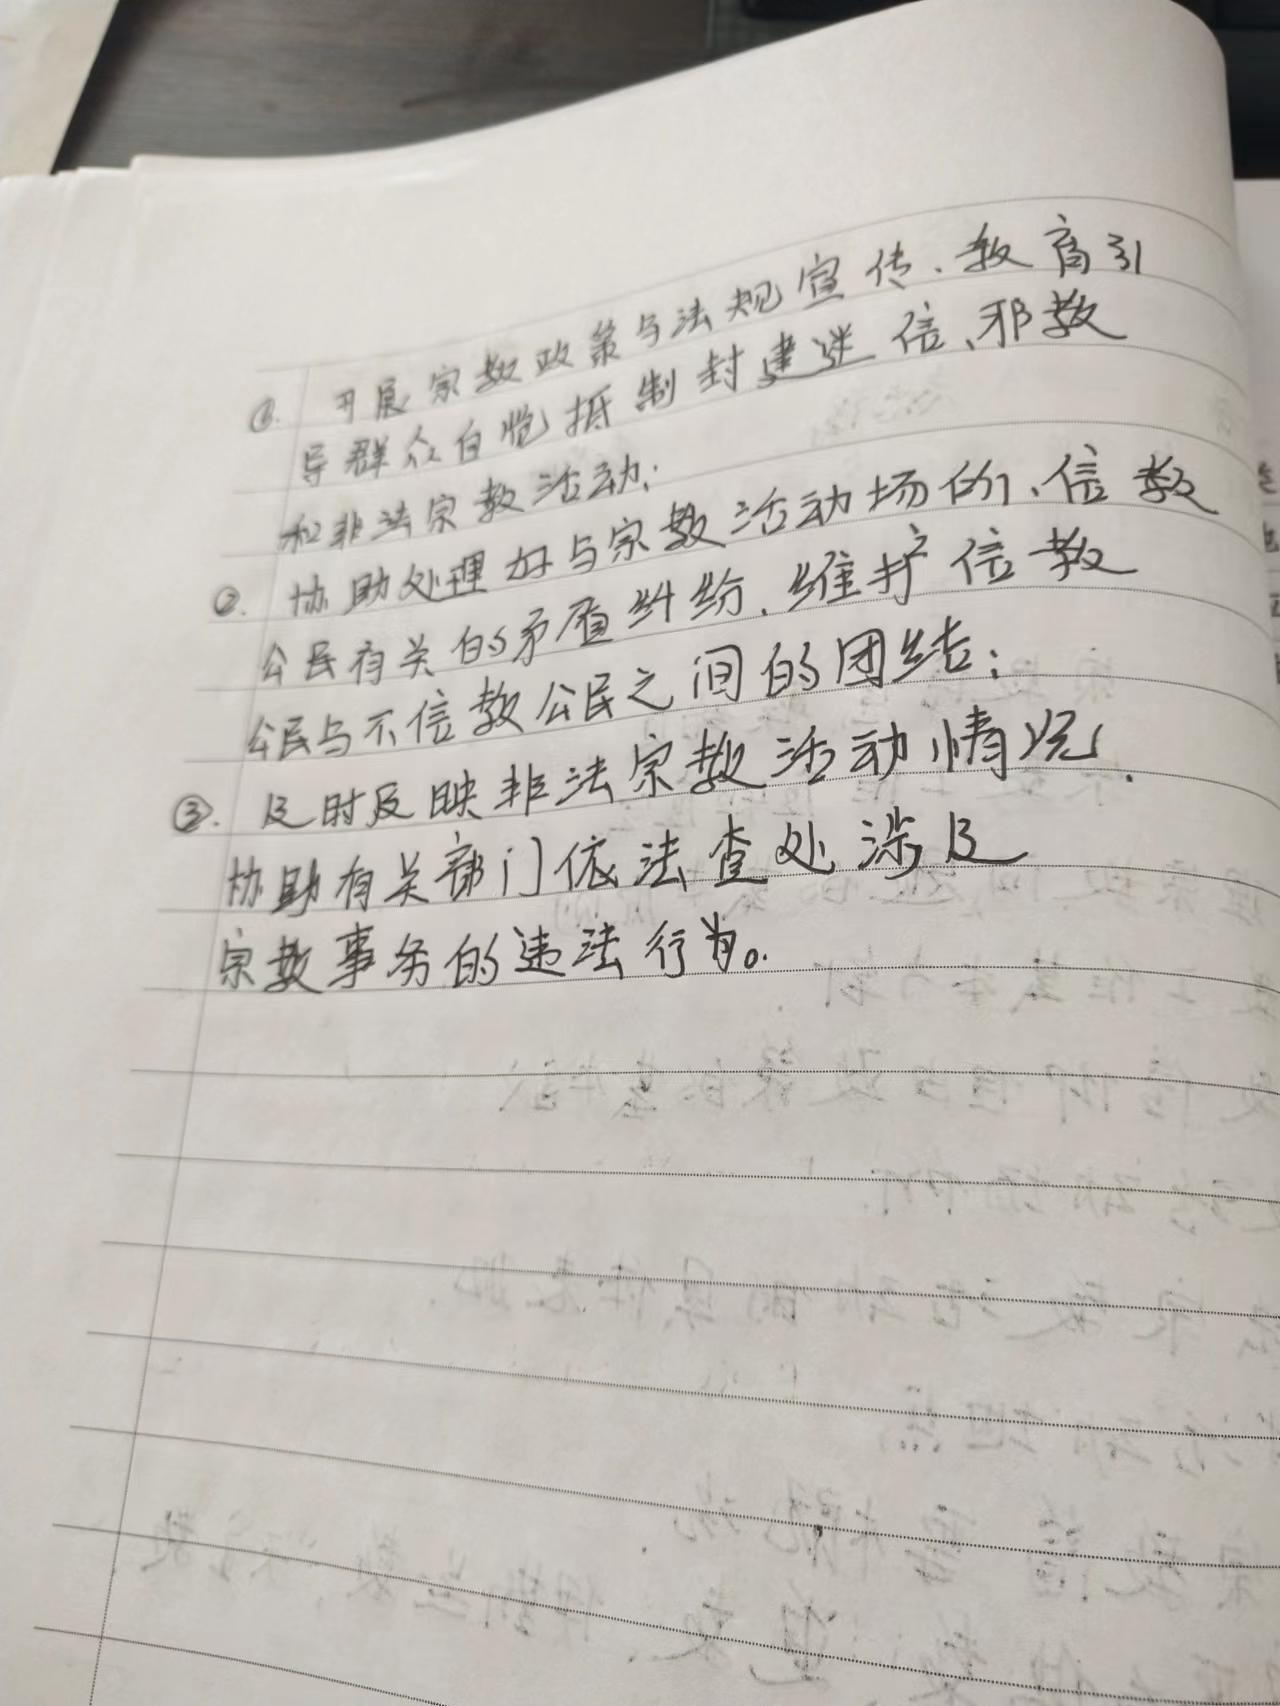 ①. 开展宗教政策与法规宣传、教育引
导群众自觉抵制封建迷信、邪教
和非法宗教活动;
②. 协助处理好与宗教活动场所、信教
公民有关的矛盾纠纷、维护信教
公民与不信教公民之间的团结;
③. 及时反映非法宗教活动情况.
协助有关部门依法查处涉及
宗教事务的违法行为。